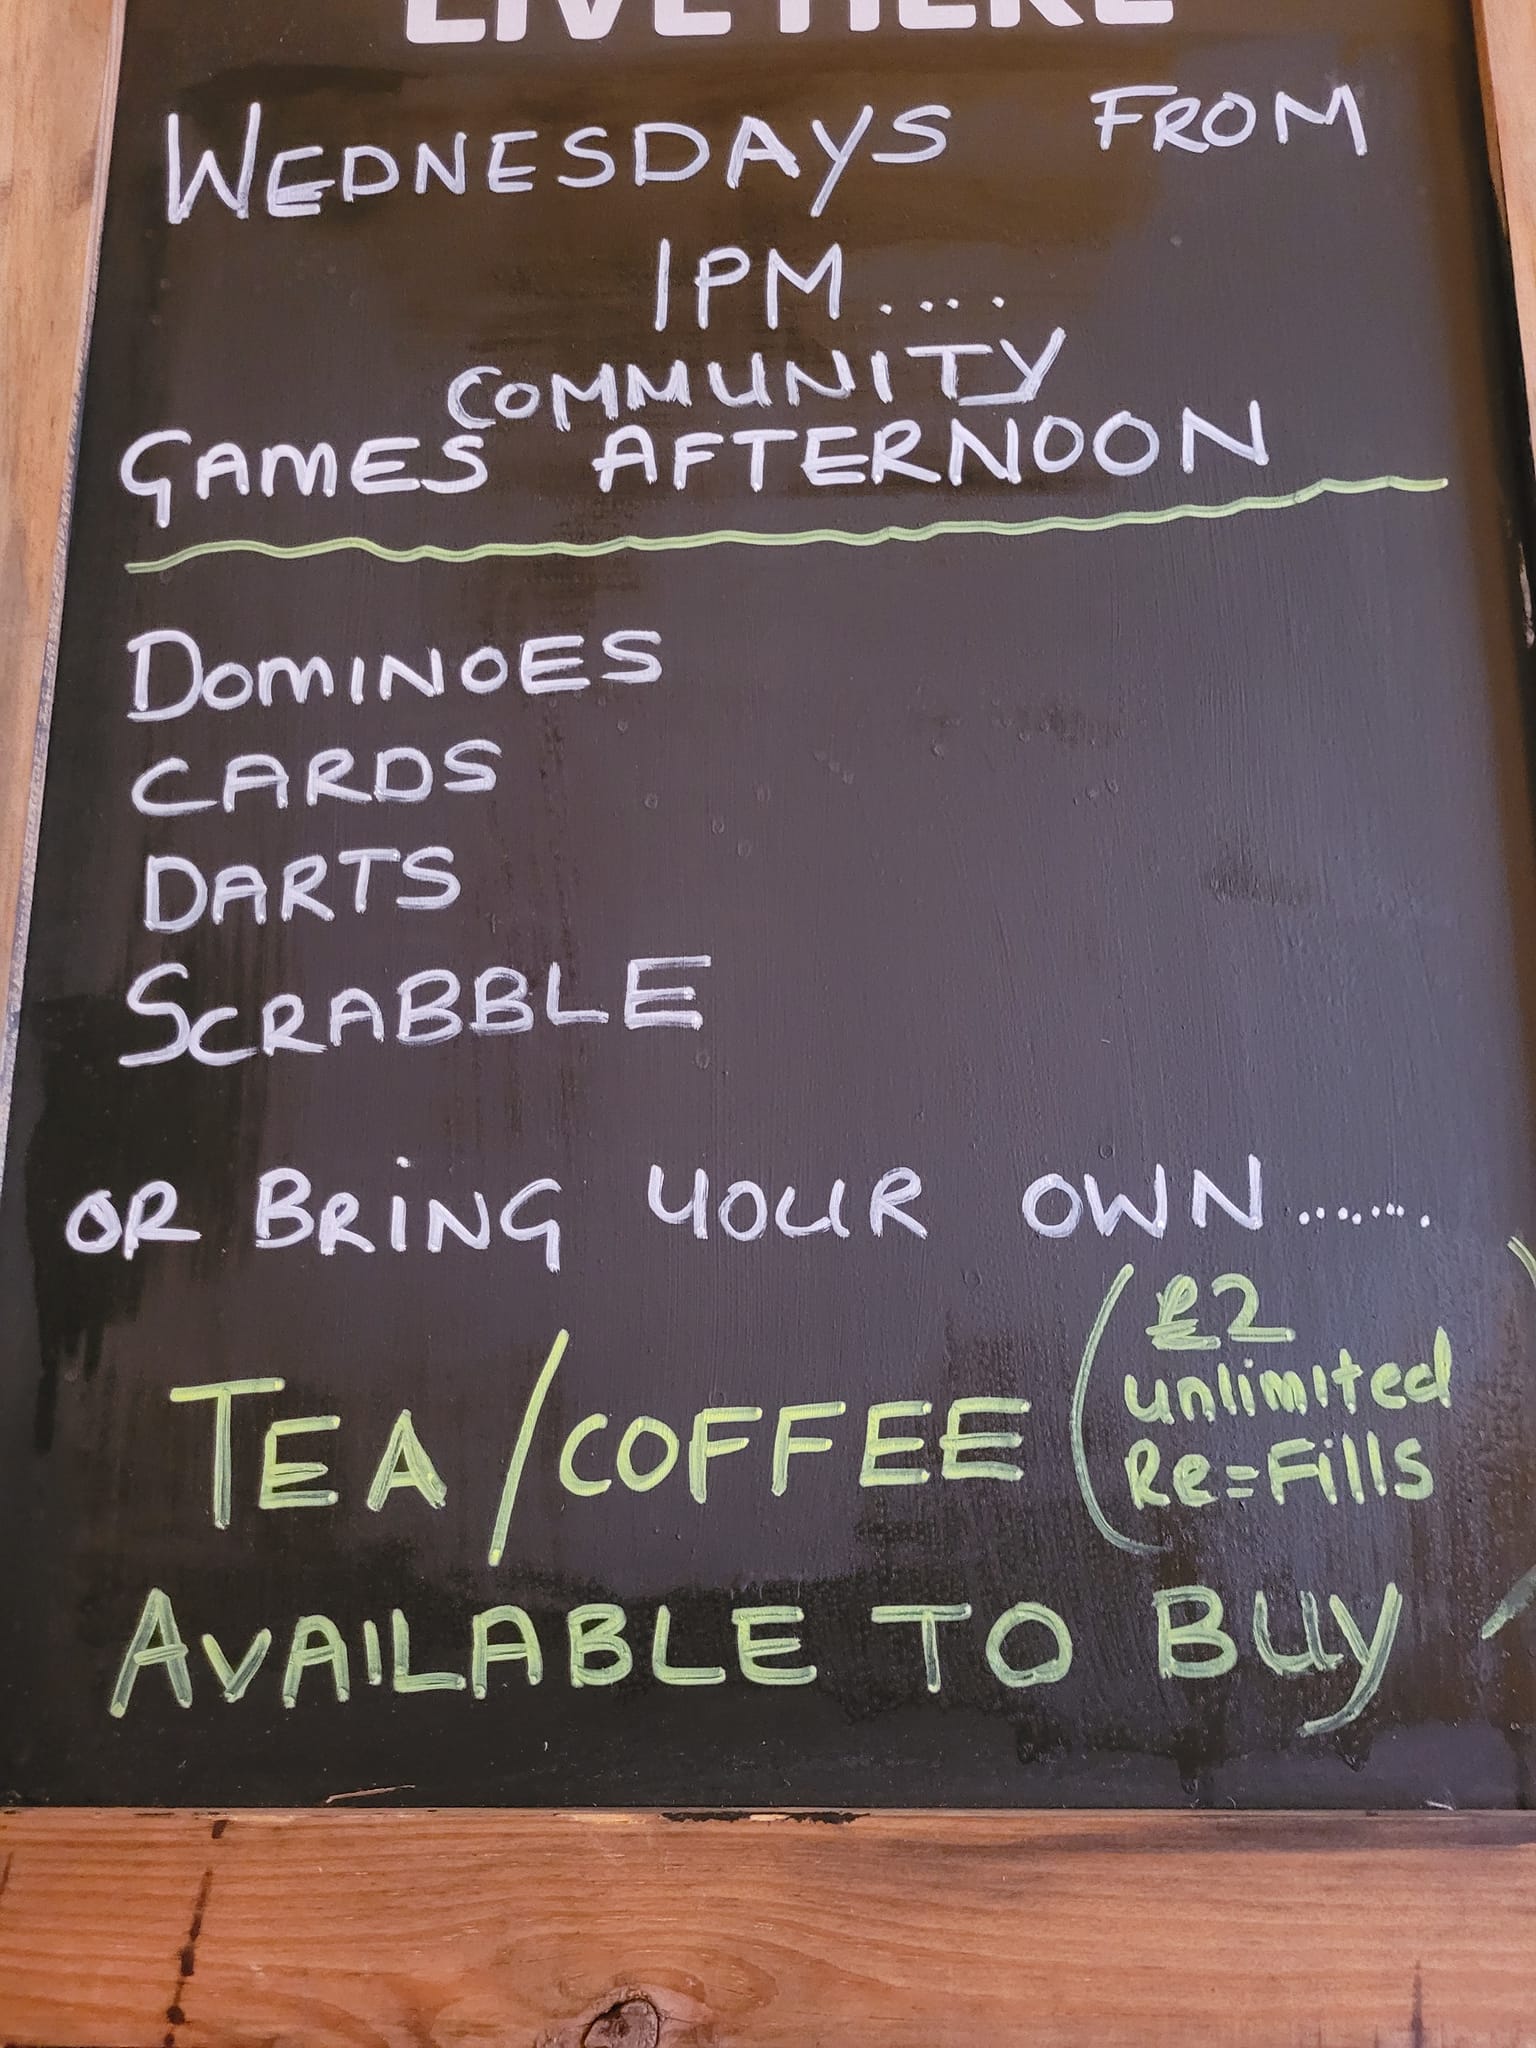 LIVE HERE
WEDNESDAYS FROM
1PM....
COMMUNITY
GAMES AFTERNOON
DOMINOES
CARDS
DARTS
SCRABBLE
OR BRING YOUR OWN.......
TEA/COFFEE (£2 unlimited Re=Fills)
AVAILABLE TO BUY